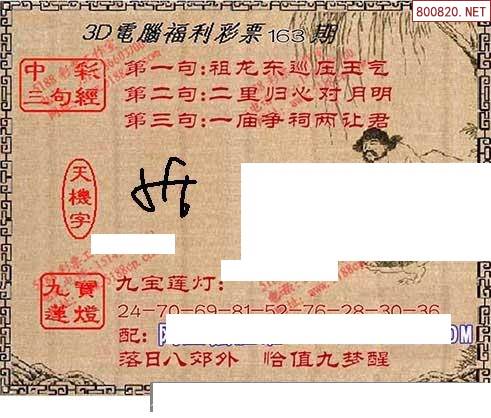 800820.NET
3D電腦福利彩票163期
中彩
三句經
第一句:祖龙东巡压王气
第二句:二里归心对月明
第三句:一庙争祠两让君
天機字
九寶
蓮燈
九宝莲灯:
24-70-69-81-52-76-28-30-36
配:
落日八郊外 恰值九梦醒